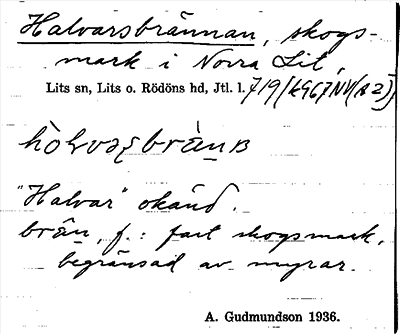 Halvarsbrännan, skogs-
mark i Norra Lit,
Lits sn, Lits o. Rödöns hd, Jtl. l. 719 (k967NV(A2))
hòlvaʂbrèn̲ʙ
"Halvar" okänd.
brên̲, f.: fast skogsmark,
begränsad av myrar.
A. Gudmundson 1936.